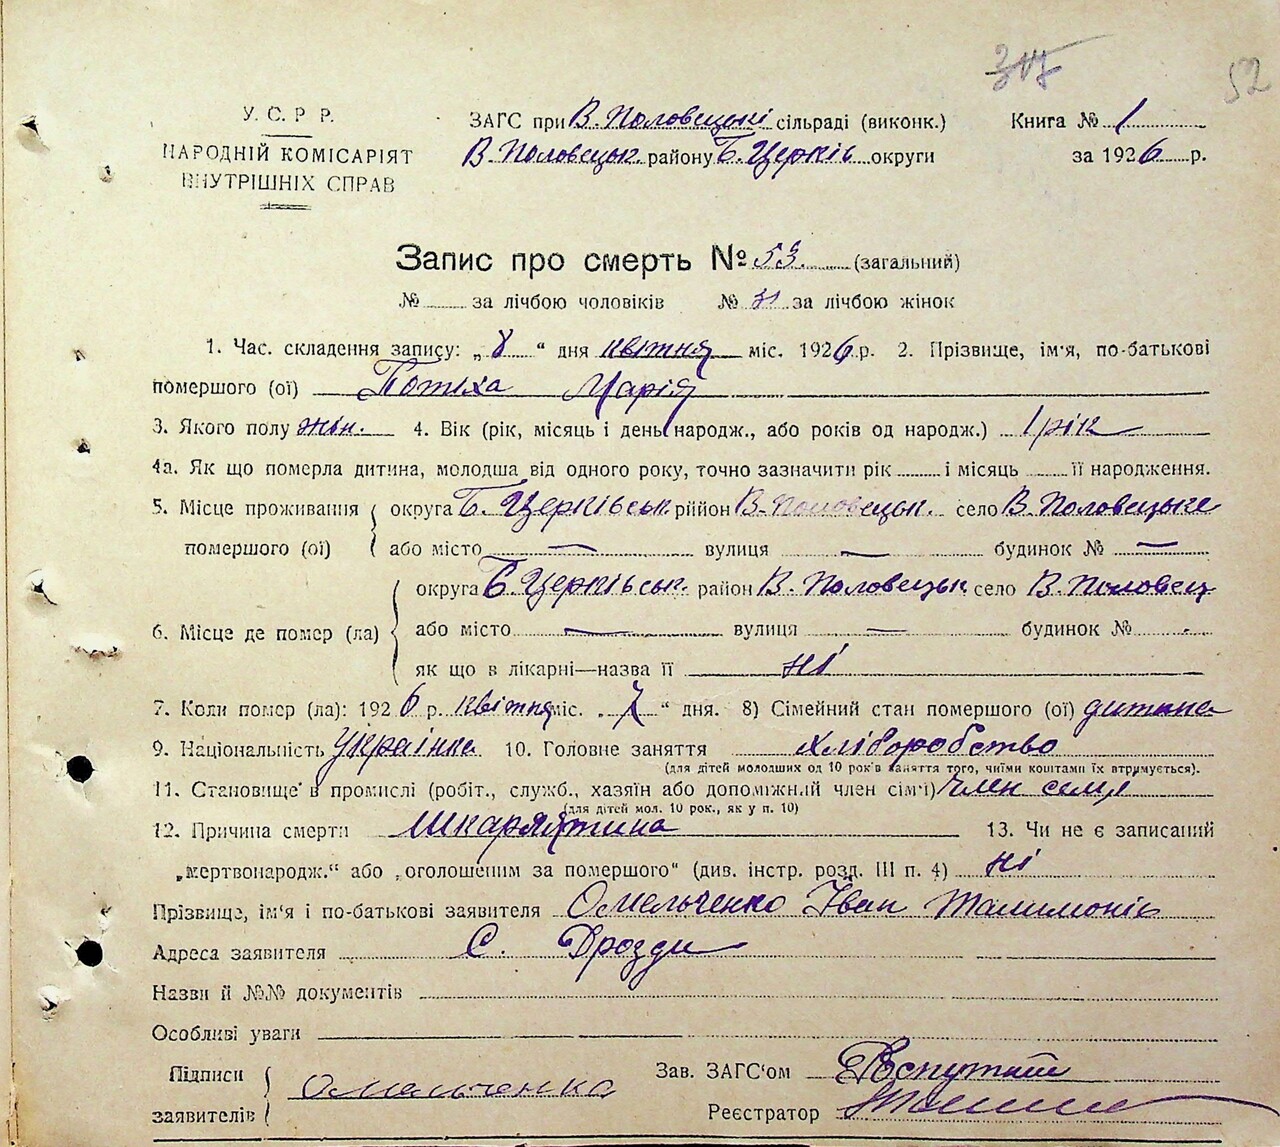 317
52
У. С. Р. Р.
НАРОДНІЙ КОМІСАРІЯТ
ВНУТРІШНІХ СПРАВ
ЗАГС при В. Половецькі сільраді (виконк.)
В. Половецьк. району Б. Церків округи
Книга № 1
за 1926 р.
Запис про смерть № 53. (загальний)
№ за лічбою чоловіків № 31 за лічбою жінок
1. Час. складення запису: „ 8 “ дня квітня міс. 1926 р. 2. Прізвище, ім'я, по-батькові
помершого (ої) Потіха Марія
3. Якого полу жін. 4. Вік (рік, місяць і день народж., або років од народж.) 1 рік
4а. Як що померла дитина, молодша від одного року, точно зазначити рік і місяць її народження.
5. Місце проживання помершого (ої) округа Б. Церківськ рййон В. Половецьк. село В. Половецьке
або місто — вулиця — будинок № —
6. Місце де помер (ла) округа Б. Церківськ. район В. Половецьк село В. Половец
або місто — вулиця — будинок № -
як що в лікарні—назва її ні
7. Коли помер (ла): 1926 р. квітня міс. „ 7 “ дня. 8) Сімейний стан помершого (ої) дитина
9. Національність Українка 10. Головне заняття хліборобство
(для дітей молодших од 10 років заняття того, чиїми коштами їх втримується).
11. Становище в промислі (робіт., служб., хазяїн або допоміжний член сім'ї) член семя
(для дітей мол. 10 рок., як у п. 10)
12. Причина смерти Шкарлятина 13. Чи не є записаний
„мертвонародж.“ або „оголошеним за помершого“ (див. інстр. розд. III п. 4) ні
Прізвище, ім'я і по-батькові заявителя Омельченко Іван
Адреса заявителя С. Дрозди
Назви й №№ документів
Особливі уваги
Підписи заявителів Омельченко
Зав. ЗАГС'ом
Реєстратор